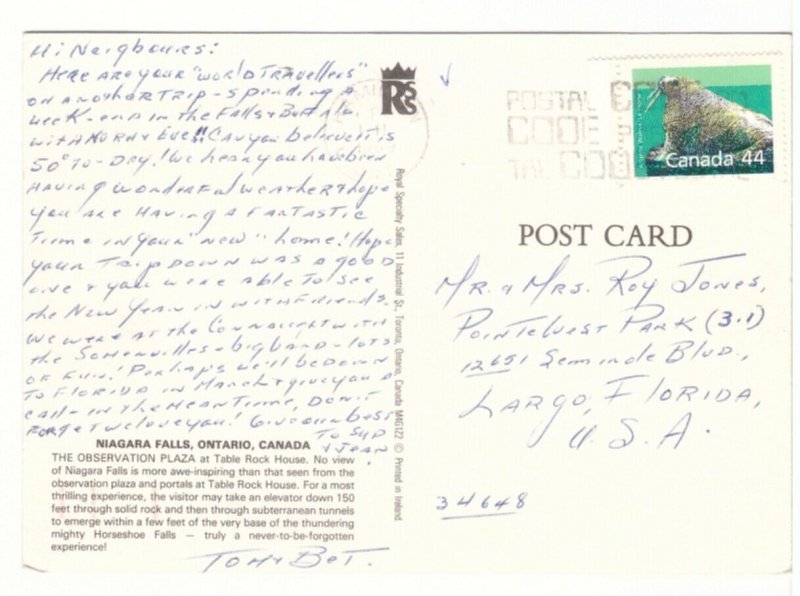 Hi Neigbours!
Here are your "World Travellers"
on another trip - spending a
week-end in the Falls & Buffalo
with & Eve!! Can you believe it is
50° to-day! We hear you have been
having wonderful weather & hope
you are having a fantastic
time in your "new" home! Hope
your trip down was a good
one & you were able to see
the New Year in with friends.
We were at the Connaught with
the Somervilles - big band - lots
of fun! Perhaps we'll be down
to Florida in March & give you a
call - in the meantime, don't
forget we love you! Give our best
to Syd
& Jean.
NIAGARA FALLS, ONTARIO, CANADA
THE OBSERVATION PLAZA at Table Rock House. No view
of Niagara Falls is more awe-inspiring than that seen from the
observation plaza and portals at Table Rock House. For a most
thrilling experience, the visitor may take an elevator down 150
feet through solid rock and then through subterranean tunnels
to emerge within a few feet of the very base of the thundering
mighty Horseshoe Falls — truly a never-to-be-forgotten
experience!
Tom & Bet.
RSS
Royal Specialty Sales, 11 Industrial St., Toronto, Ontario, Canada M4G1Z2 © Printed in Ireland
POSTAL
CODE
Canada 44
POST CARD
Mr. & Mrs. Roy Jones,
Pointe West Park (3.1)
12651 Seminde Blvd.,
Largo, Florida,
U.S.A.
34648